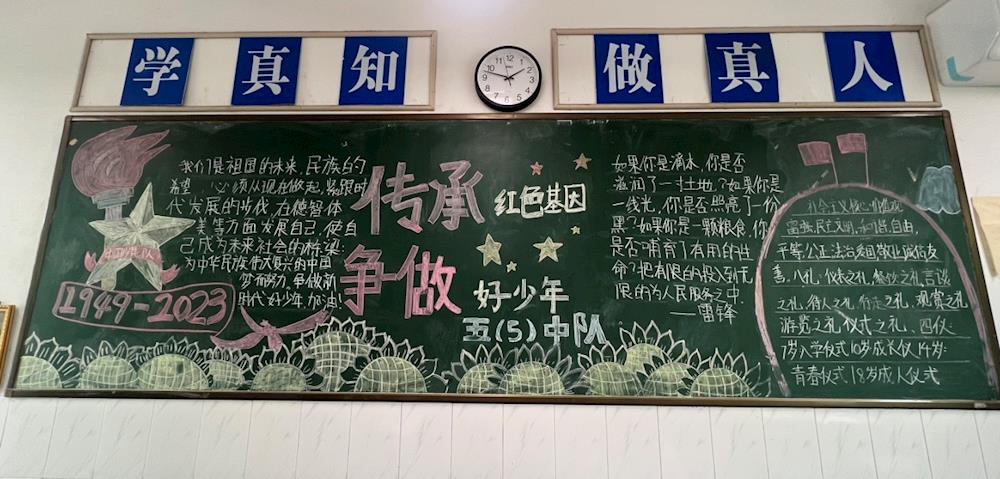 学真知
做真人
我们是祖国的未来,民族的
希望,必须从现在做起,紧跟时
代发展的步伐,在德智体
美等方面发展自己,使自
己成为未来社会的栋梁
为中华民族伟大复兴的中国
梦而努力,争做新
时代好少年,加油!
1949-2023
传承
红色基因
争做
好少年
五(5)中队
如果你是滴水,你是否
滋润了一寸土地?如果你是
一线光,你是否照亮了一份
黑?如果你是一颗粮食,你
是否哺育了有用的性
命?把有限的投入到无
限的为人民服务之中。
——雷锋
社会主义核心价值观
富强,民主,文明,和谐,自由,
平等,公正,法治,爱国,敬业,诚信,友
善,八礼:仪表之礼,餐饮之礼,言谈
之礼,待人之礼,行走之礼,观赏之礼
游览之礼,仪式之礼,四仪:
7岁入学仪式10岁成长仪14岁:
青春仪式18岁成人仪式